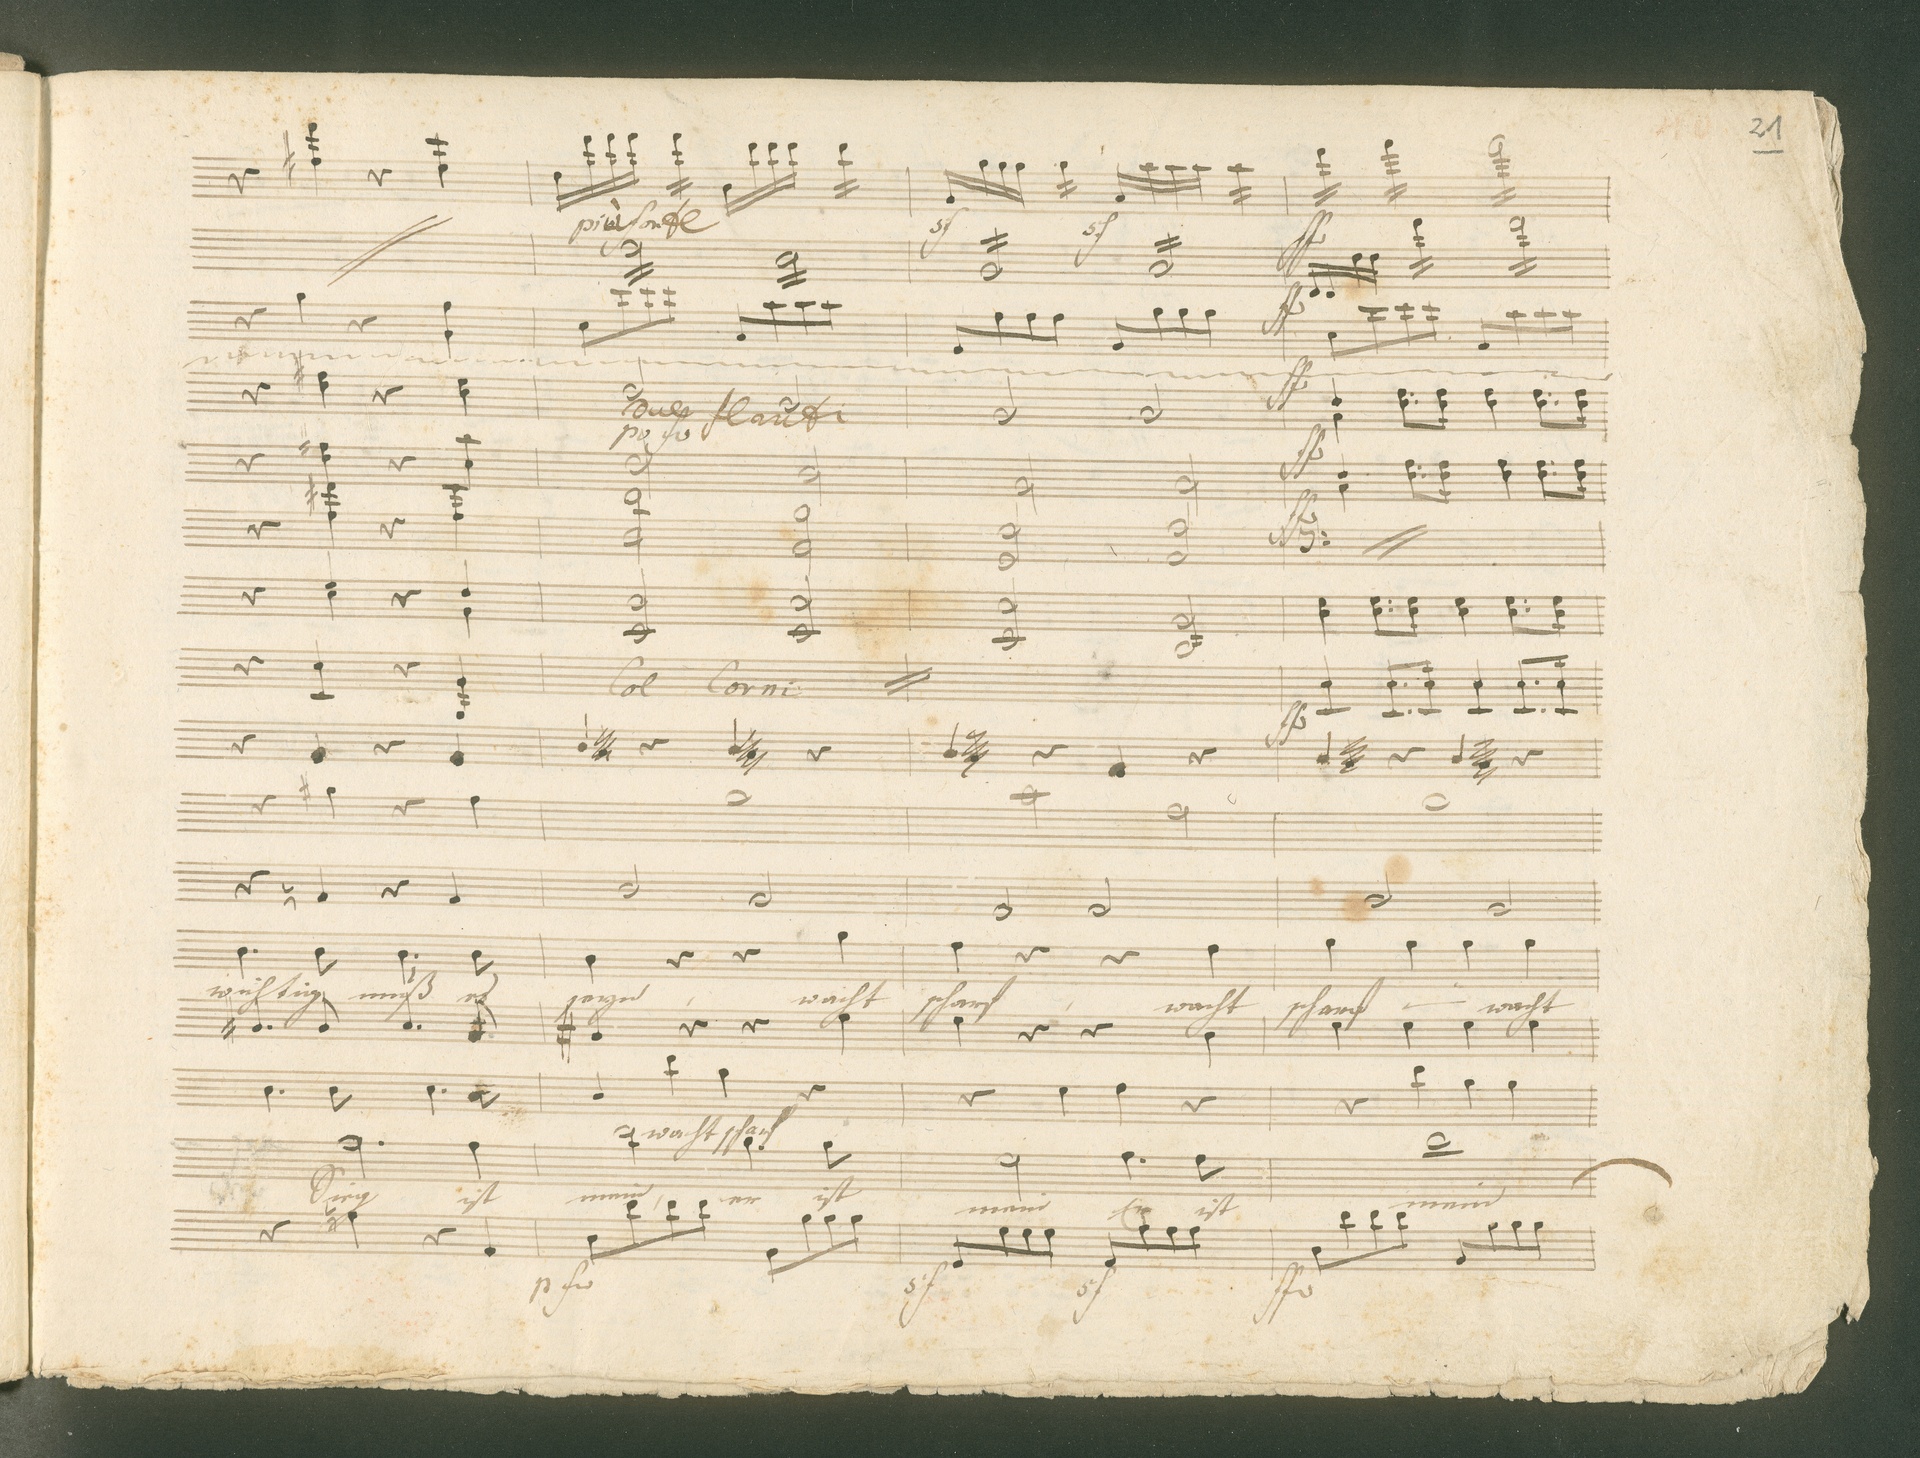 21
più forte
sf sf ff
ff
due flauti ff
po fo ff
Col Corni
ff
wichtig muß es seyn, wacht scharf, wacht scharf — wacht
wacht scharf
Sieg ist mein, er ist mein Er ist mein
p fo sf sf ffo